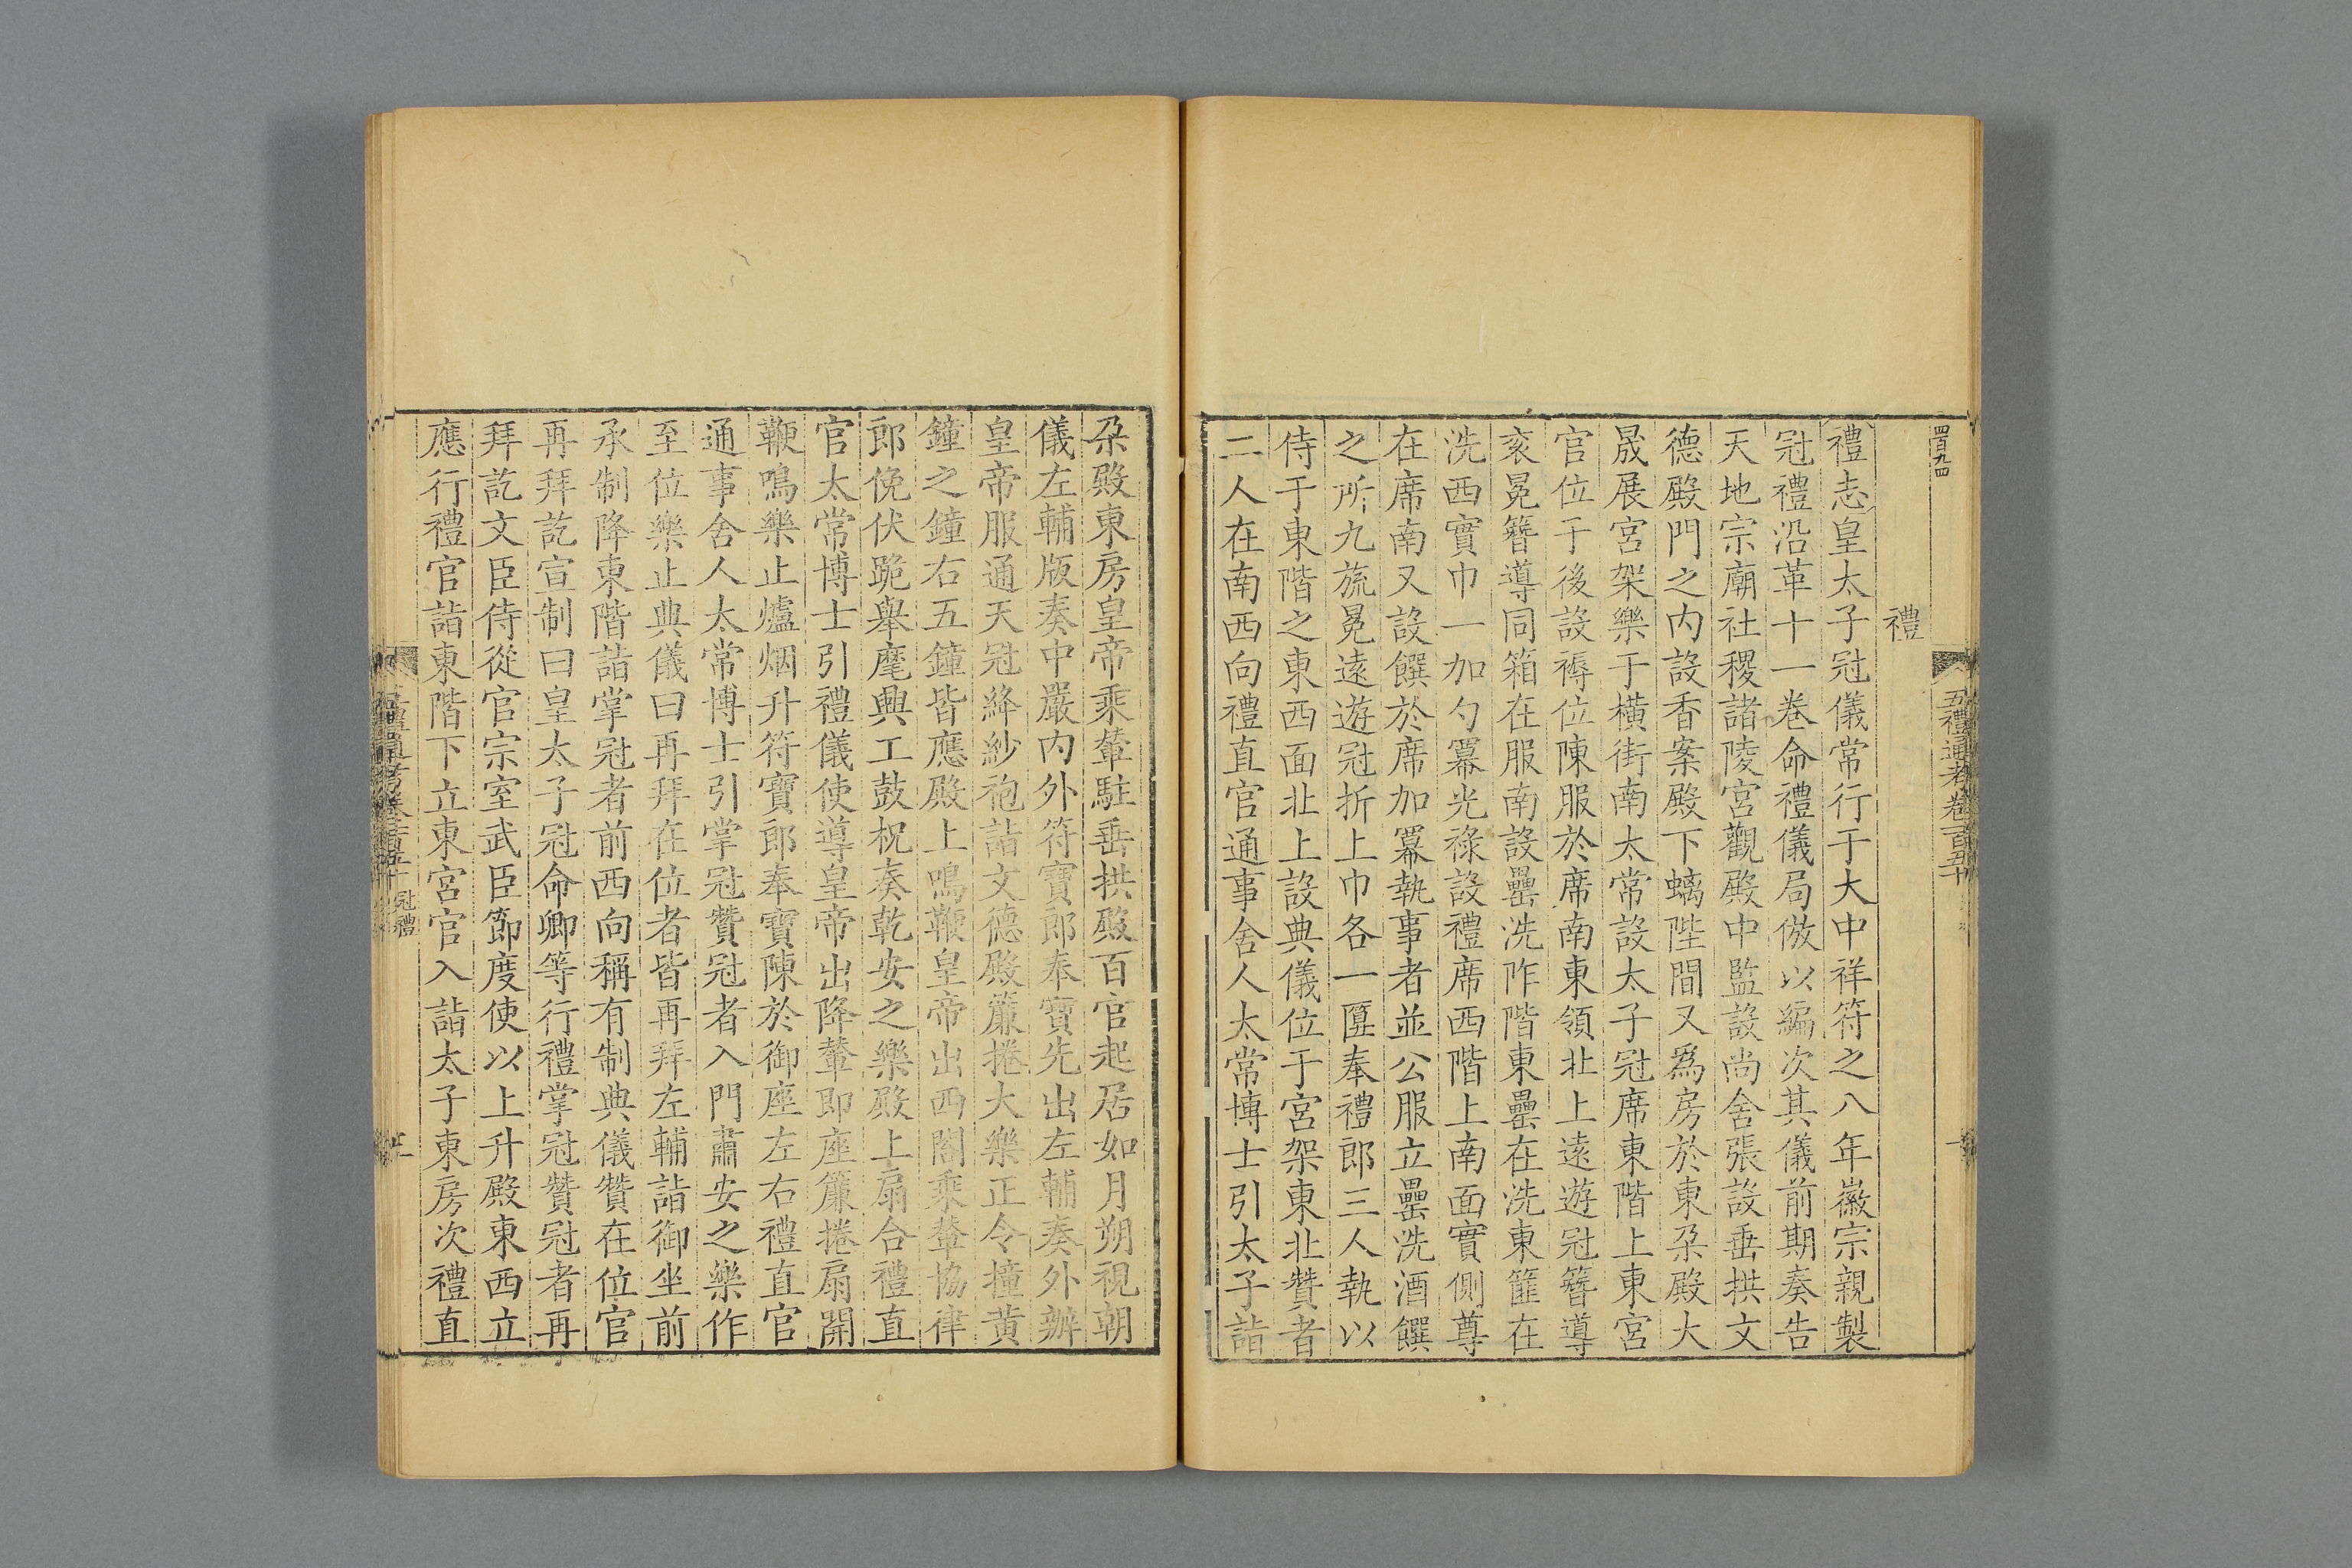 四百九四
五禮通考卷一百五十
禮
禮志皇太子冠儀常行于大中祥符之八年徽宗親製
冠禮沿革十一卷命禮儀局倣以編次其儀前期奏告
天地宗廟社稷諸陵宮觀殿中監設尚舍張設垂拱文
德殿門之內設香案殿下螭陛間又爲房於東朶殿大
晟展宮架樂于橫街南太常設太子冠席東階上東宮
官位于後設褥位陳服於席南東領北上遠遊冠簪導
衮冕簪導同箱在服南設罍洗阼階東罍在洗東篚在
洗西實巾一加勺冪光祿設禮席西階上南面實側尊
在席南又設饌於席加冪執事者並公服立罍洗酒饌
之所九旒冕遠遊冠折上巾各一匴奉禮郎三人執以
侍于東階之東西面北上設典儀位于宮架東北贊者
二人在南西向禮直官通事舍人太常博士引太子詣
朶殿東房皇帝乘輦駐垂拱殿百官起居如月朔視朝
儀左輔版奏中嚴內外符寶郎奉寶先出左輔奏外辦
皇帝服通天冠絳紗袍詣文德殿簾捲大樂正令撞黃
鐘之鐘右五鐘皆應殿上鳴鞭皇帝出西閤乘輦協律
郎俛伏跪舉麾興工鼓柷奏乾安之樂殿上扇合禮直
官太常博士引禮儀使導皇帝出降輦即座簾捲扇開
鞭鳴樂止爐烟升符寶郎奉寶陳於御座左右禮直官
通事舍人太常博士引掌冠贊冠者入門肅安之樂作
至位樂止典儀曰再拜在位者皆再拜左輔詣御坐前
承制降東階詣掌冠者前西向稱有制典儀贊在位官
再拜訖宣制曰皇太子冠命卿等行禮掌冠贊冠者再
拜訖文臣侍從官宗室武臣節度使以上升殿東西立
應行禮官詣東階下立東宮官入詣太子東房次禮直
冠禮